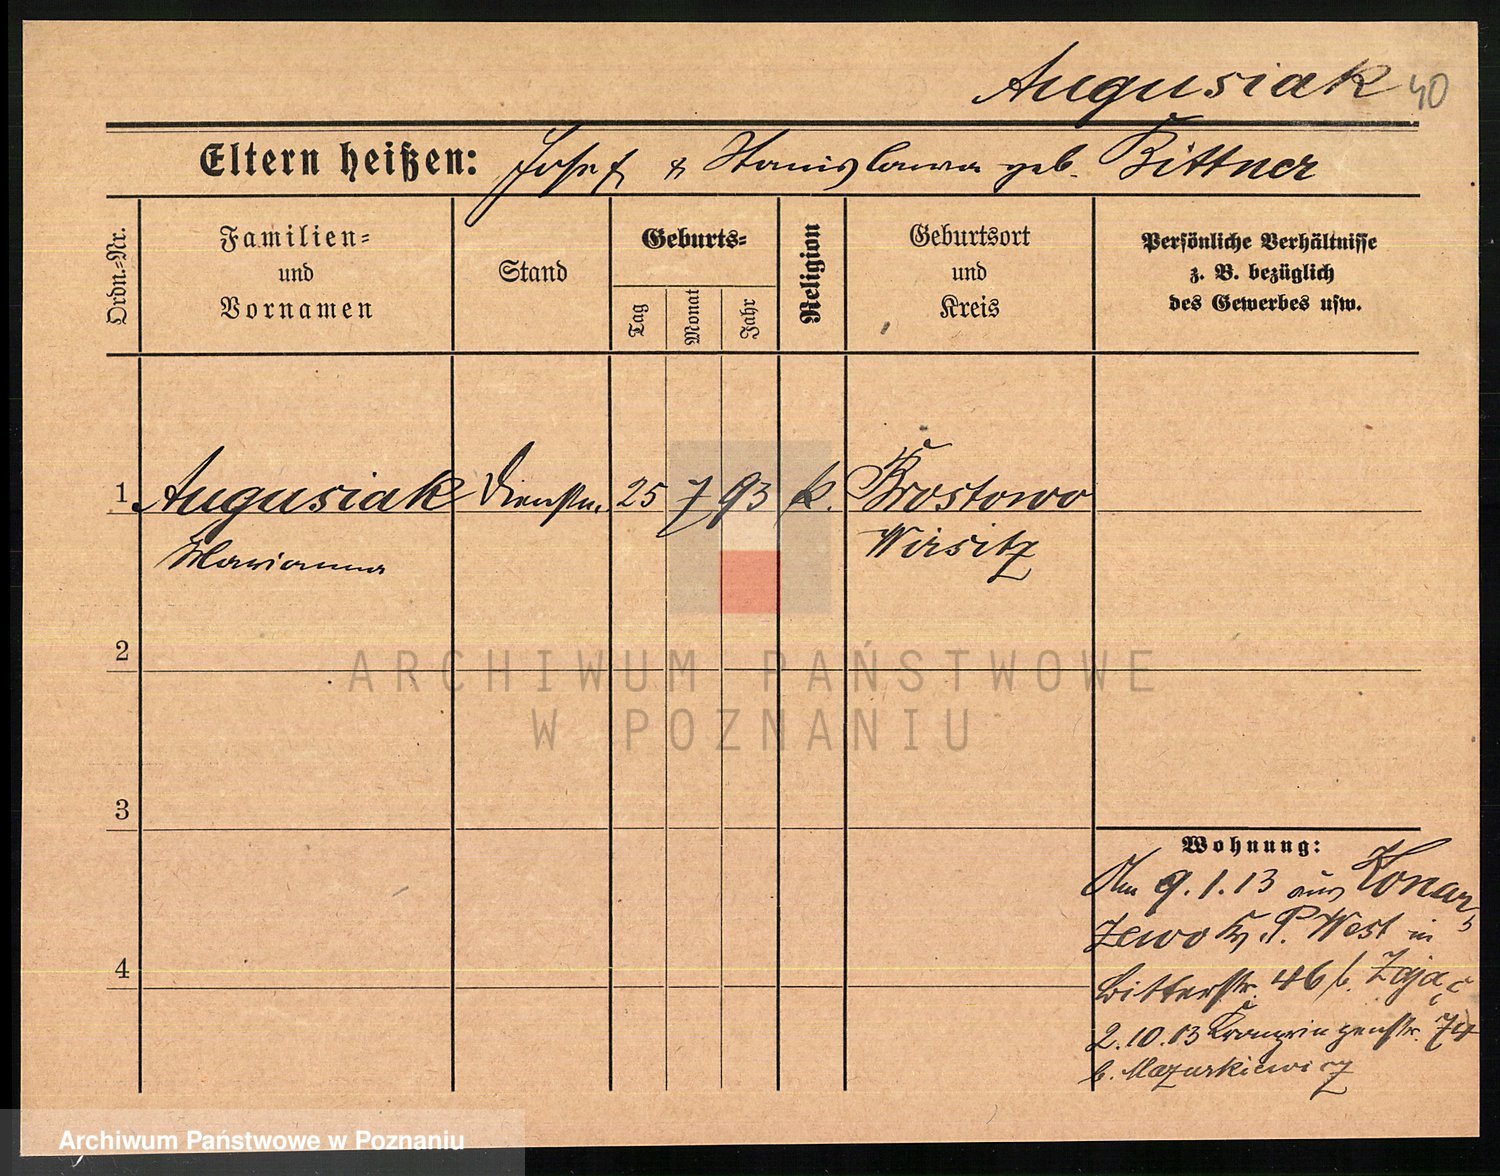 Augusiak 40
Eltern heißen: Josef & Stanislawa geb. Bittner
Ordn.-Nr.
Familien-
und
Vornamen
Stand
Geburts-
Tag
Monat
Jahr
Religion
Geburtsort
und
Kreis
Persönliche Verhältnisse
z. B. bezüglich
des Gewerbes usw.
1 Augusiak Dienstm. 25 7 93 k. Brostowo
Marianna Wirsitz
2
ARCHIWUM PAŃSTWOWE
W POZNANIU
3
Wohnung:
Am 9.1.13 aus Konar-
zewo Kr. P. West in
Bitterstr. 46 b. Zając
4
2.10.13 Kronprinzenstr. 74
b. Mazurkiewicz
Archiwum Państwowe w Poznaniu